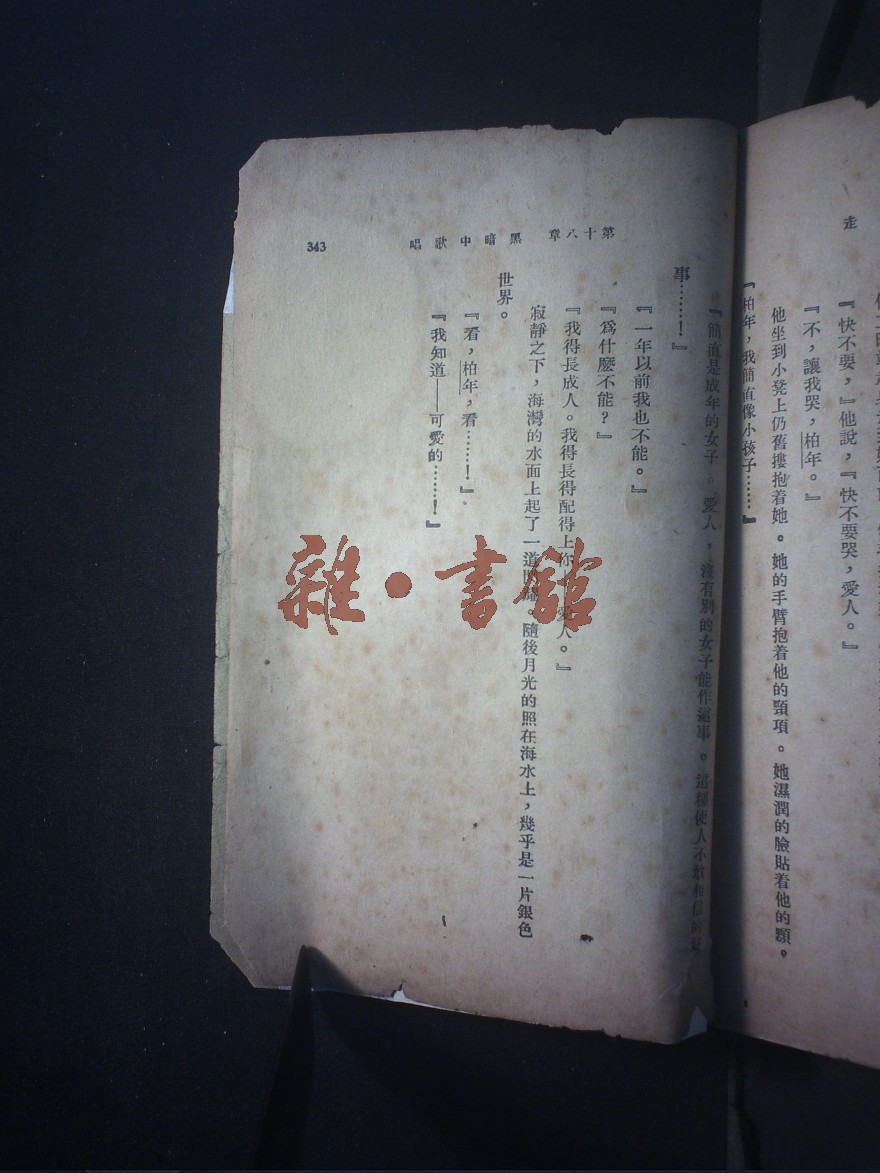 走
『快不要，』他說，『快不要哭，愛人。』
『不，讓我哭，柏年。』
他坐到小凳上仍舊摟抱着她。她的手臂抱着他的頸項。她濕潤的臉貼着他的頰。
『柏年，我簡直像小孩子……』
第十八章 黑暗中歌唱
343
『簡直是成年的女子。愛人，沒有別的女子能作這事。這種使人不敢相信的
事……！』
『一年以前我也不能。』
『爲什麼不能？』
『我得長成人。我得長得配得上你 愛人。』
寂靜之下，海灣的水面上起了一道 。隨後月光的照在海水上，幾乎是一片銀色
世界。
『看，柏年，看……！』
『我知道——可愛的……！』
雜·書館